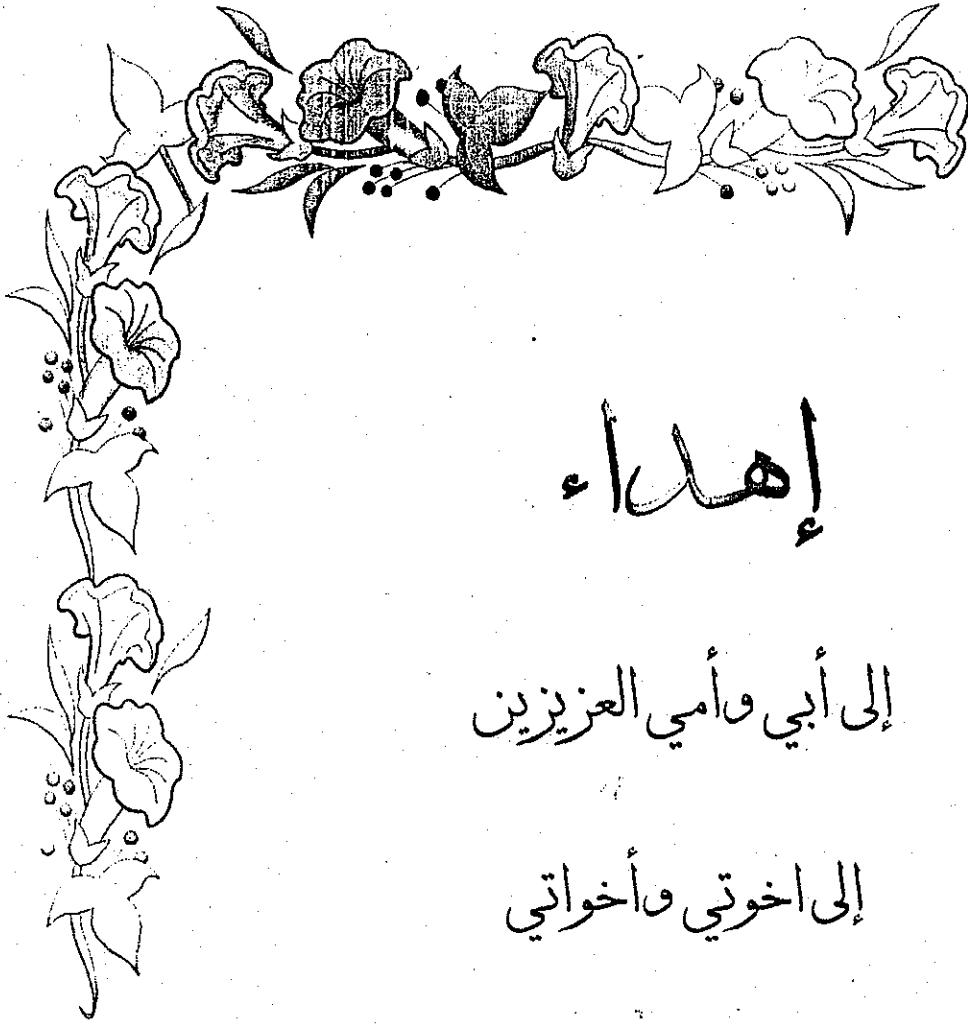 إهداء
إلى أبي وأمي العزيزين
إلى اخوتي وأخواتي